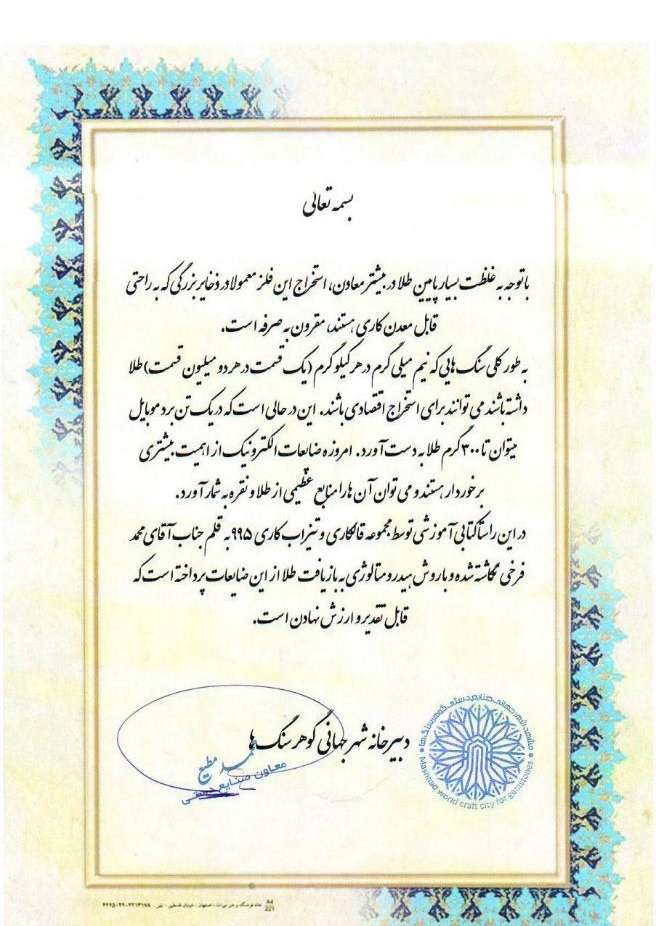 بسمه تعالی
باتوجه به غلظت بسیار پایین طلا در بیشتر معادن، استخراج این فلز معمولا در ذخایر بزرگی که به راحتی
قابل معدن کاری هستند، مقرون به صرفه است.
به طور کلی سنگ هایی که نیم میلی گرم در هر کیلوگرم (یک قسمت در هر دو میلیون قسمت) طلا
داشته باشند می توانند برای استخراج اقتصادی باشند. این در حالی است که در یک تن برد موبایل
میتوان تا ۳۰۰ گرم طلا به دست آورد. امروزه ضایعات الکترونیک از اهمیت بیشتری
برخوردار هستند و می توان آن ها را منابع عظیمی از طلا و نقره به شمار آورد.
در این راستا کتابی آموزشی توسط مجموعه قالکاری و تیزاب کاری ۹۹۵ به قلم جناب آقای محمد
فرخی نگاشته شده و با روش هیدرومتالوژی به بازیافت طلا از این ضایعات پرداخته است که
قابل تقدیر و ارزش نهادن است.
دبیرخانه شهر جهانی گوهر سنگ ها
مطیع
معاون صنایع دستی
مشهد، شهر جهانی صنایع دستی گوهرسنگ ها
Mashhad world craft city for gemstones
A4
221